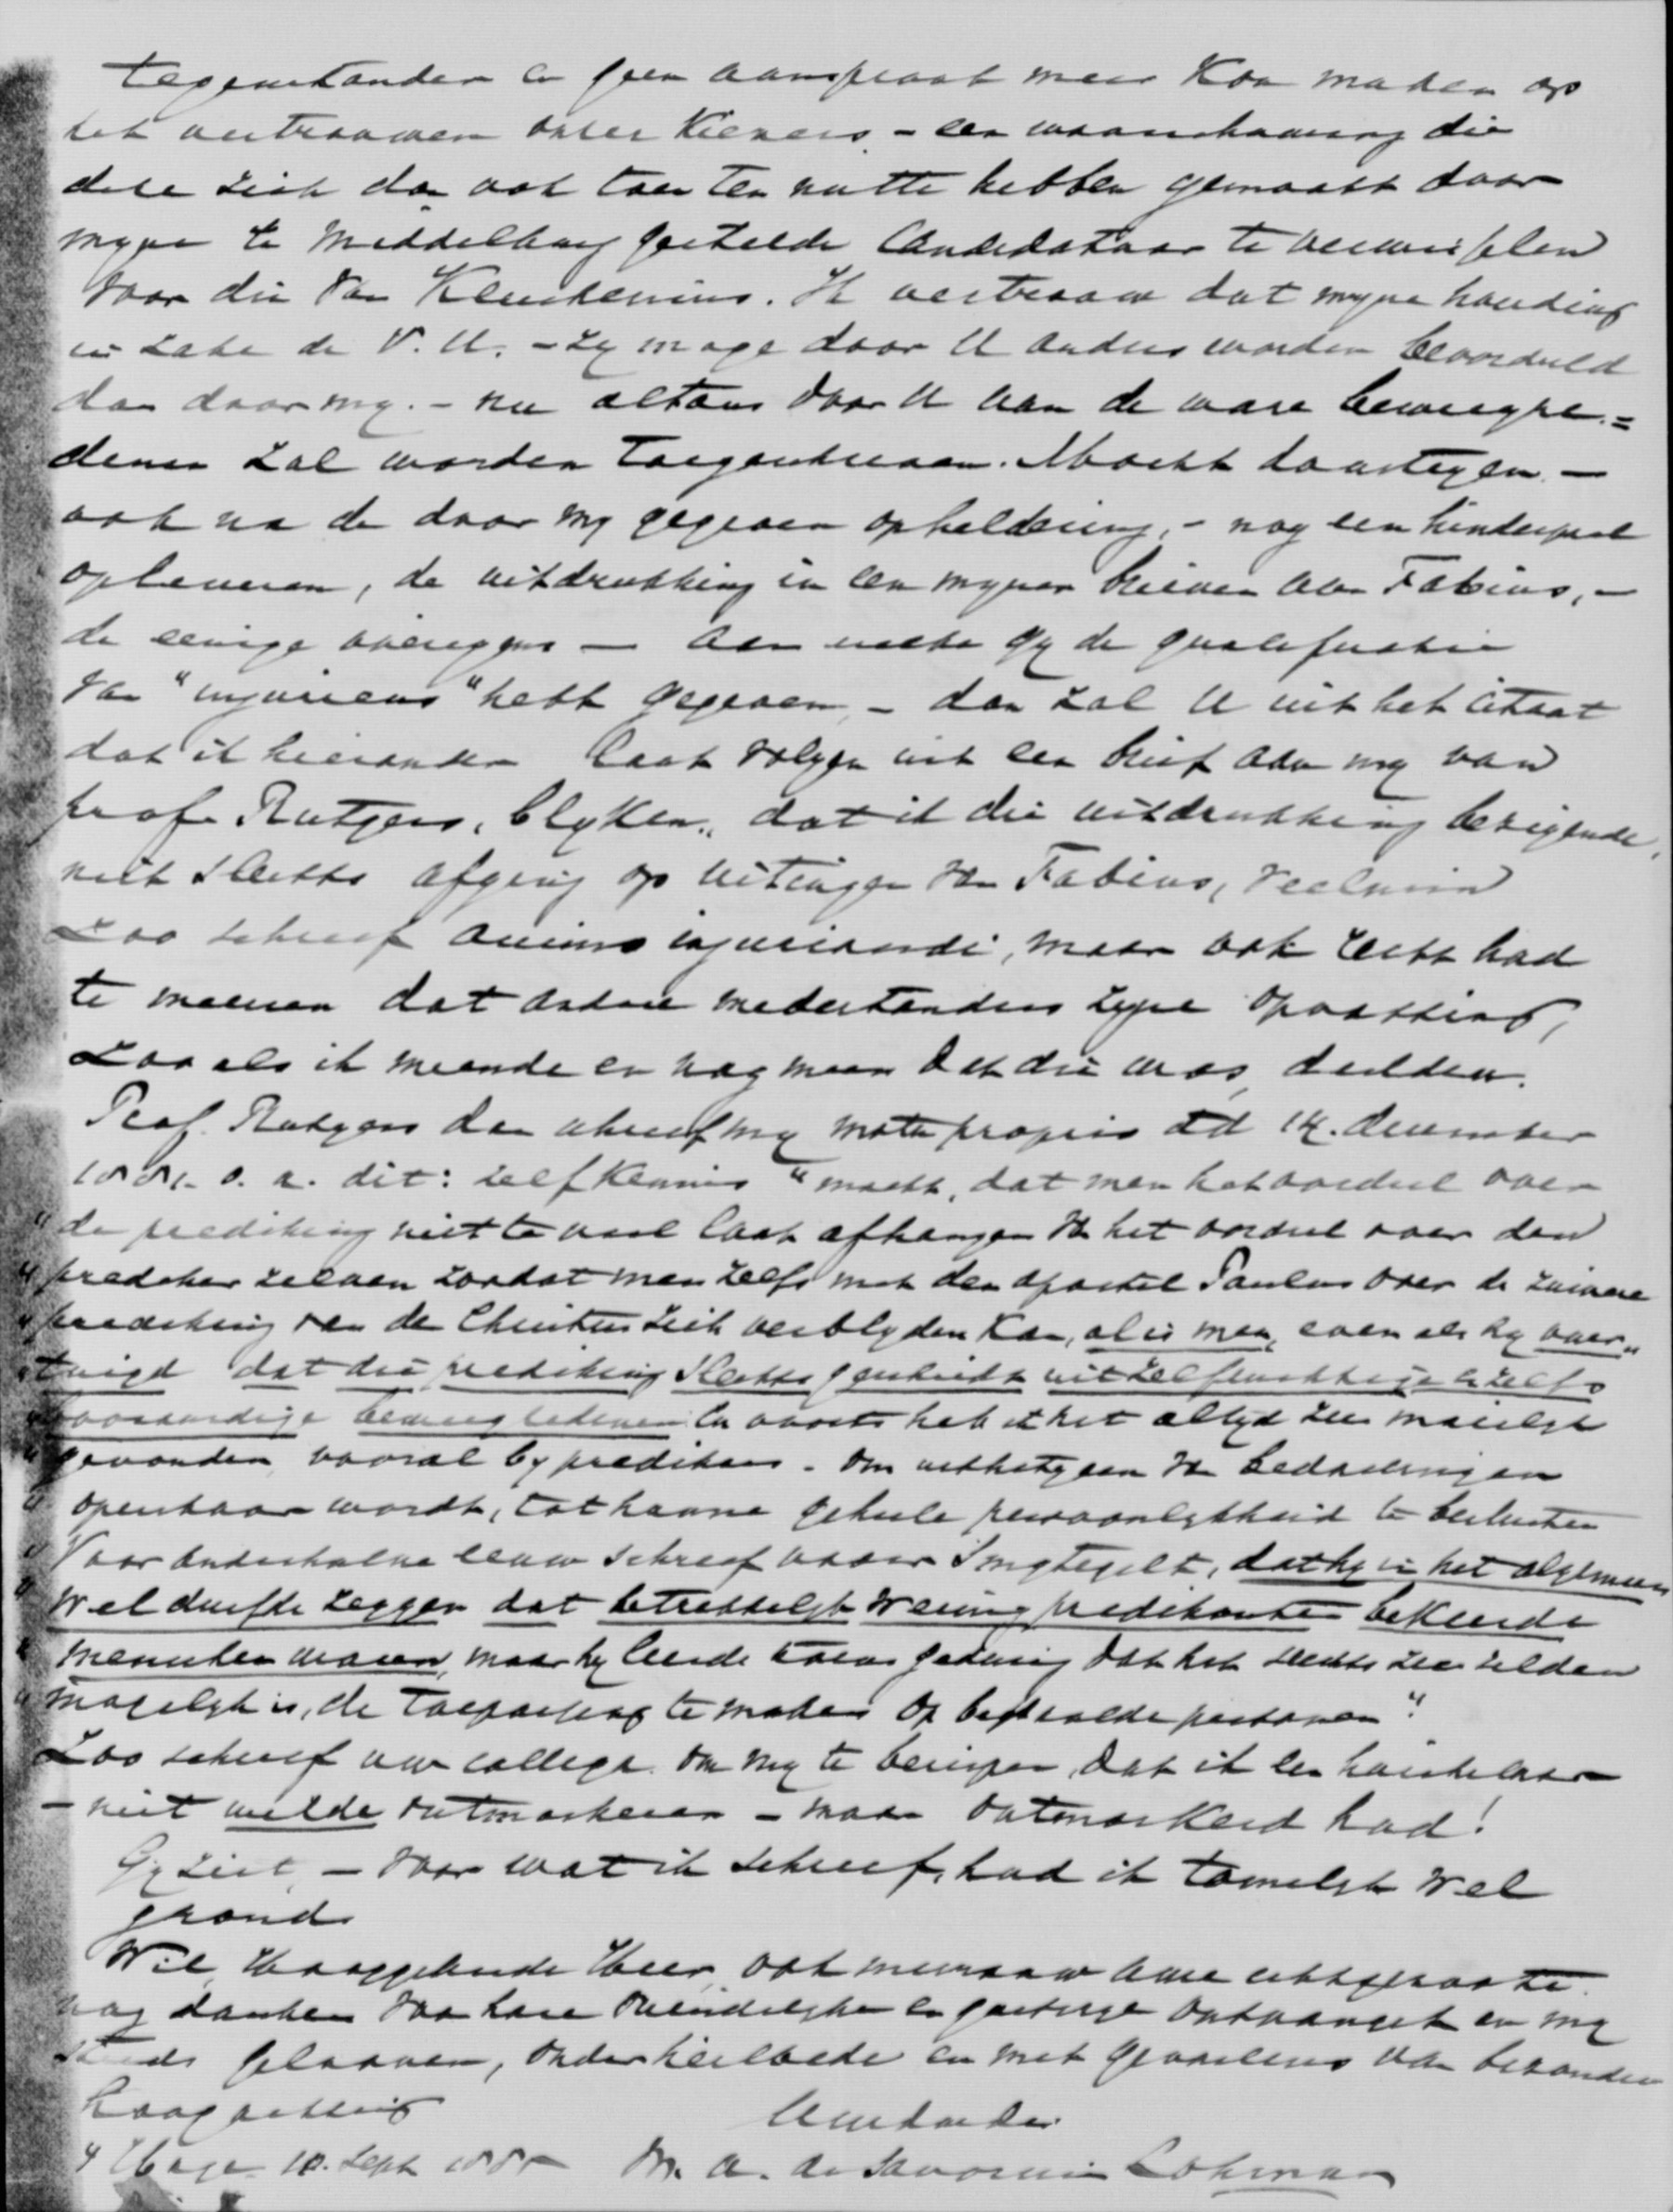 tegenstander en geen aanspraak meer kon maken op
het vertrouwen onzer kiezers, - een waarschuwing die
deze zich dan ook toen ten nutte hebben gemaakt door
mijne te Middelburg gestelde candidatuur te verwisselen
voor die van Keuchenius. Ik vertrouw dat mijne houding
in zake de V.U. - zij moge door U anders worden beoordeeld
dan door mij. - nu althans door U aan de ware beweegre=
denen zal worden toegeschreven. Mocht daartegen. -
ook na de door mij gegeven opheldering, - nog een hinderpaal
opleveren, de uitdrukking in een mijner brieven aan Fabius, -
de eenige overigens - aan welke gij de qualificatie
van "injurieus" hebt gegeven, - dan zal U uit het citaat
dat ik hieronder laat volgen uit een brief aan mij van
prof. Rutgers, blijken, dat ik die uitdrukking bezigende,
niet slechts afging op uitingen van Fabius,
zoo schreef animo injuriandi, maar ook recht had
te meenen dat andere medestanders zijne opvatting,
zooals ik meende en nog meen dat die was, deelden.
Prof. Rutgers dan schreef mij motu proprio dd 14. december
1881. o. a. dit: zelfkennis "maakt, dat men het oordeel over
" de prediking niet te veel laat afhangen van het oordeel over den
" prediker zelven zoodat men zelfs met den apostel Paulus over de zuivere
" prediking van den Christus zich verblijden kan, al is men, even als hij over„
" tuigd dat die prediking slechts geschiedt uit zelfzuchtige en zelfs
" boosaardige beweegredenen. En voorts heb ik het altijd zeer moeielijk
" gevonden, vooral bij predikers. om uit hetgeen van bedoelingen
" openbaar wordt, tot hunne geheele persoonlijkheid te besluiten
" Voor anderhalve eeuw schreef vader Smytegelt, dat hij in het algemeen
" wel durfde zeggen dat betrekkelijk weinig predikanten bekeerde
" menschen waren, maar hij leerde tevens gedurig dat het slechts zeer zelden
" mogelijk is, de toepassing te maken op bepaalde personen".
Zoo schreef uw collega. om mij te berispen, dat ik een huichelaar
- niet wilde ontmaskeren - maar ontmaskerd had!
Gij ziet, - voor wat ik schreef, had ik tamelijk wel
grond.
Wil, Hooggeleerde Heer, ook mevrouw Uwe echtgenoote
nog danken voor hare vriendelijke en gastvrije ontvangst en mij
steeds gelooven, onder heilbede en met gevoelens van bizondere
hoogachting
Uw dw dr.
's Hage. 10. Sept 1885 M. A. de Savornin Lohman